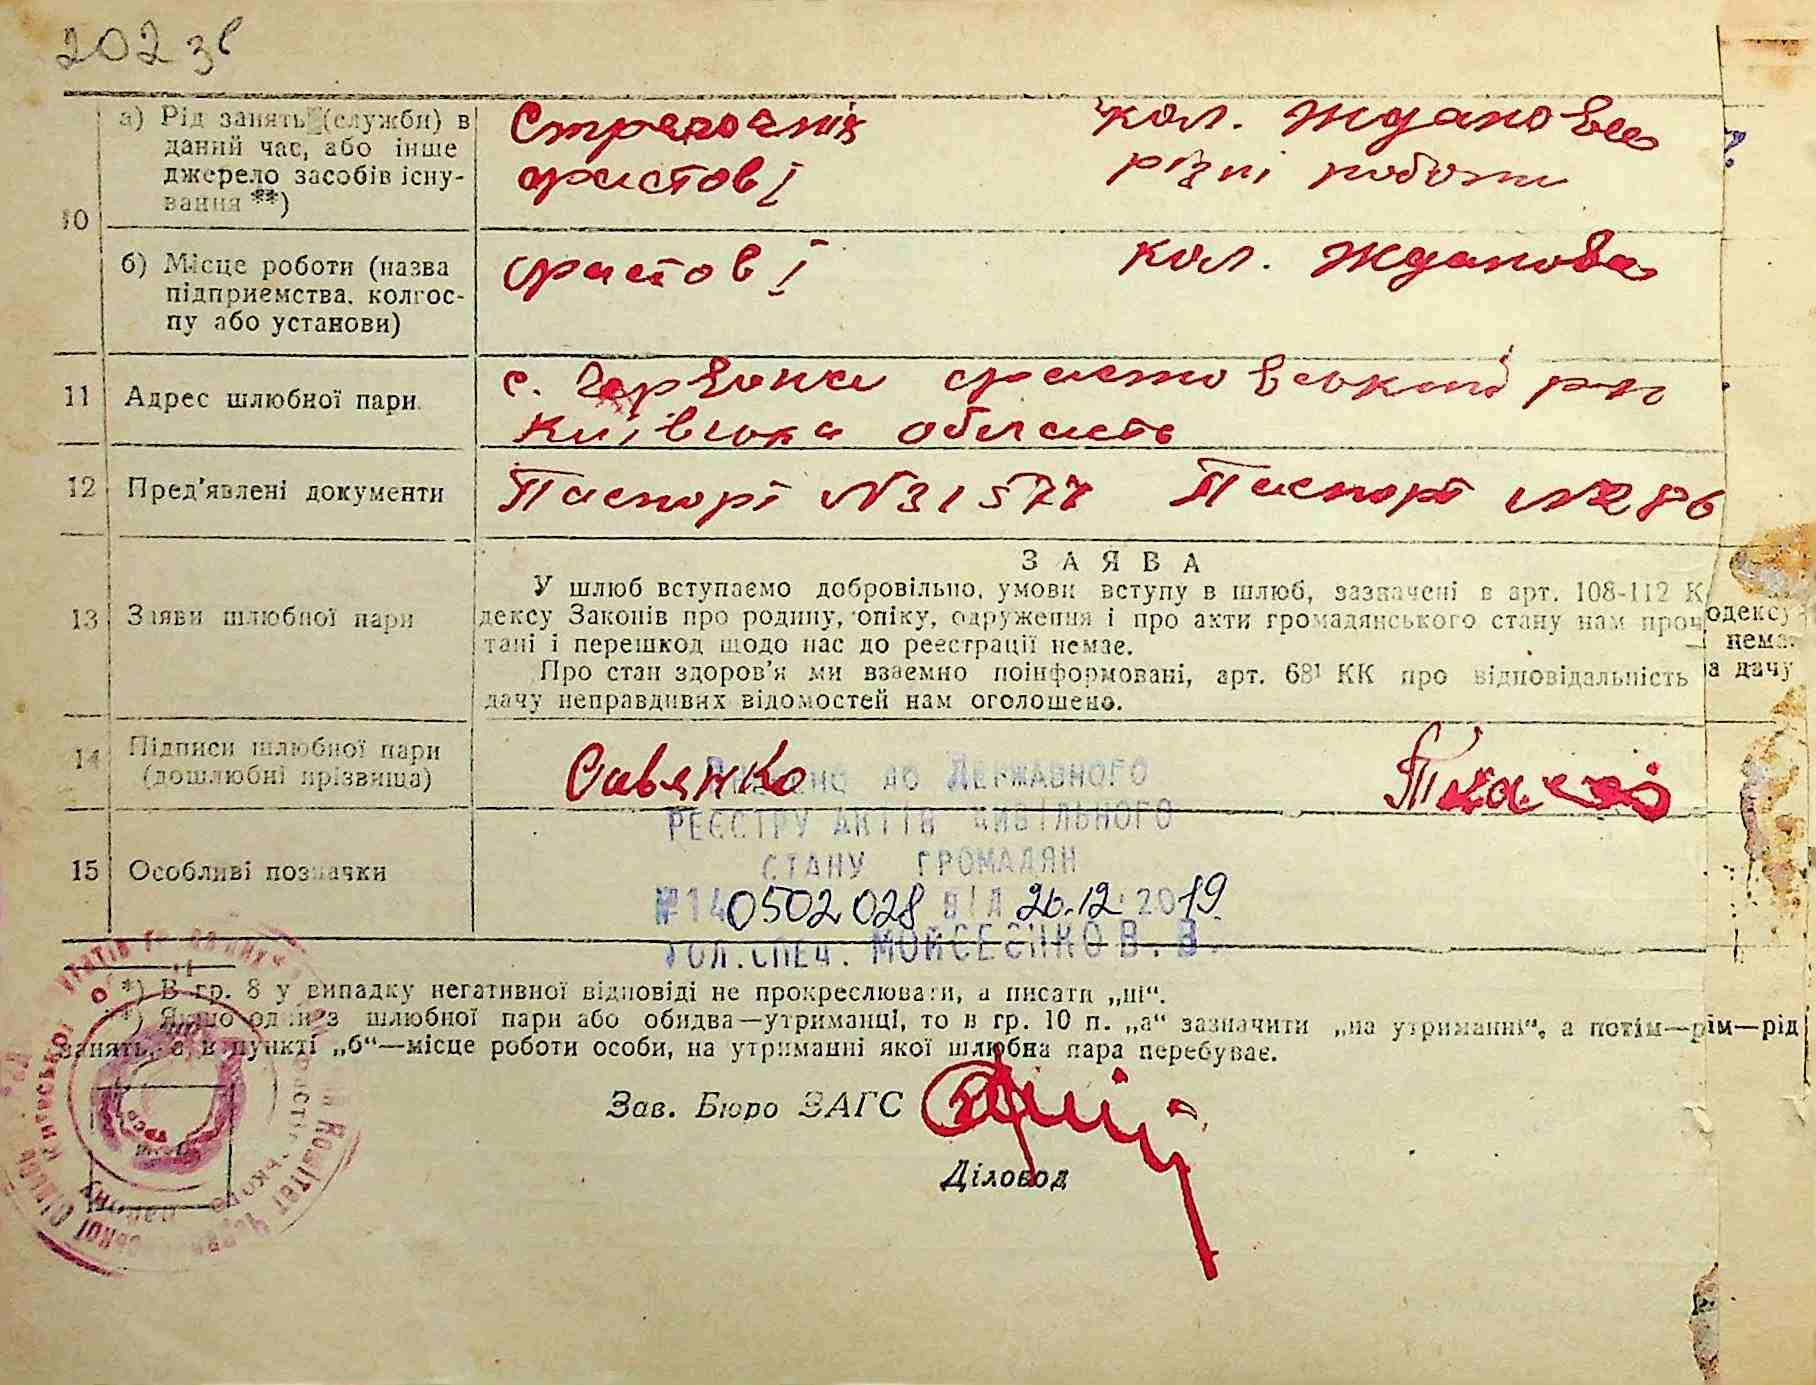 202 зв
а) Рід занять (служби) в
даний час, або інше
джерело засобів існу-
вання **)
кол. Жданова
фастові
різні роботи
10
б) Місце роботи (назва
підприємства, колгос-
пу або установи)
фастові
кол. Жданова
11 Адрес шлюбної пари
с. Червона фастовський р-н
Київська область
12 Пред'явлені документи
Паспорт № 31577 Паспорт № 286
13 Заяви шлюбної пари
ЗАЯВА
У шлюб вступаємо добровільно, умови вступу в шлюб, зазначені в арт. 108-112 К
дексу Законів про родину, опіку, одруження і про акти громадянського стану нам проч
тані і перешкод щодо нас до реєстрації немає.
Про стан здоров'я ми взаємно поінформовані, арт. 68¹ КК про відповідальність
дачу неправдивих відомостей нам оголошено.
одексу
нема
а дачу
14 Підписи шлюбної пари
(дошлюбні прізвища)
Савянко
до Державного
реєстру актів цивільного
стану громадян
№140502028 від 26.12.2019
Гол.спец. Мойсеєнко В. В.
15 Особливі позначки
*) В гр. 8 у випадку негативної відповіді не прокреслювати, а писати „ні“.
**) Якщо один з шлюбної пари або обидва—утриманці, то в гр. 10 п. „а“ зазначити „на утриманні“, а потім—рім—рід
занять, а в пункті „б“—місце роботи особи, на утриманні якої шлюбна пара перебуває.
Зав. Бюро ЗАГС
Діловод